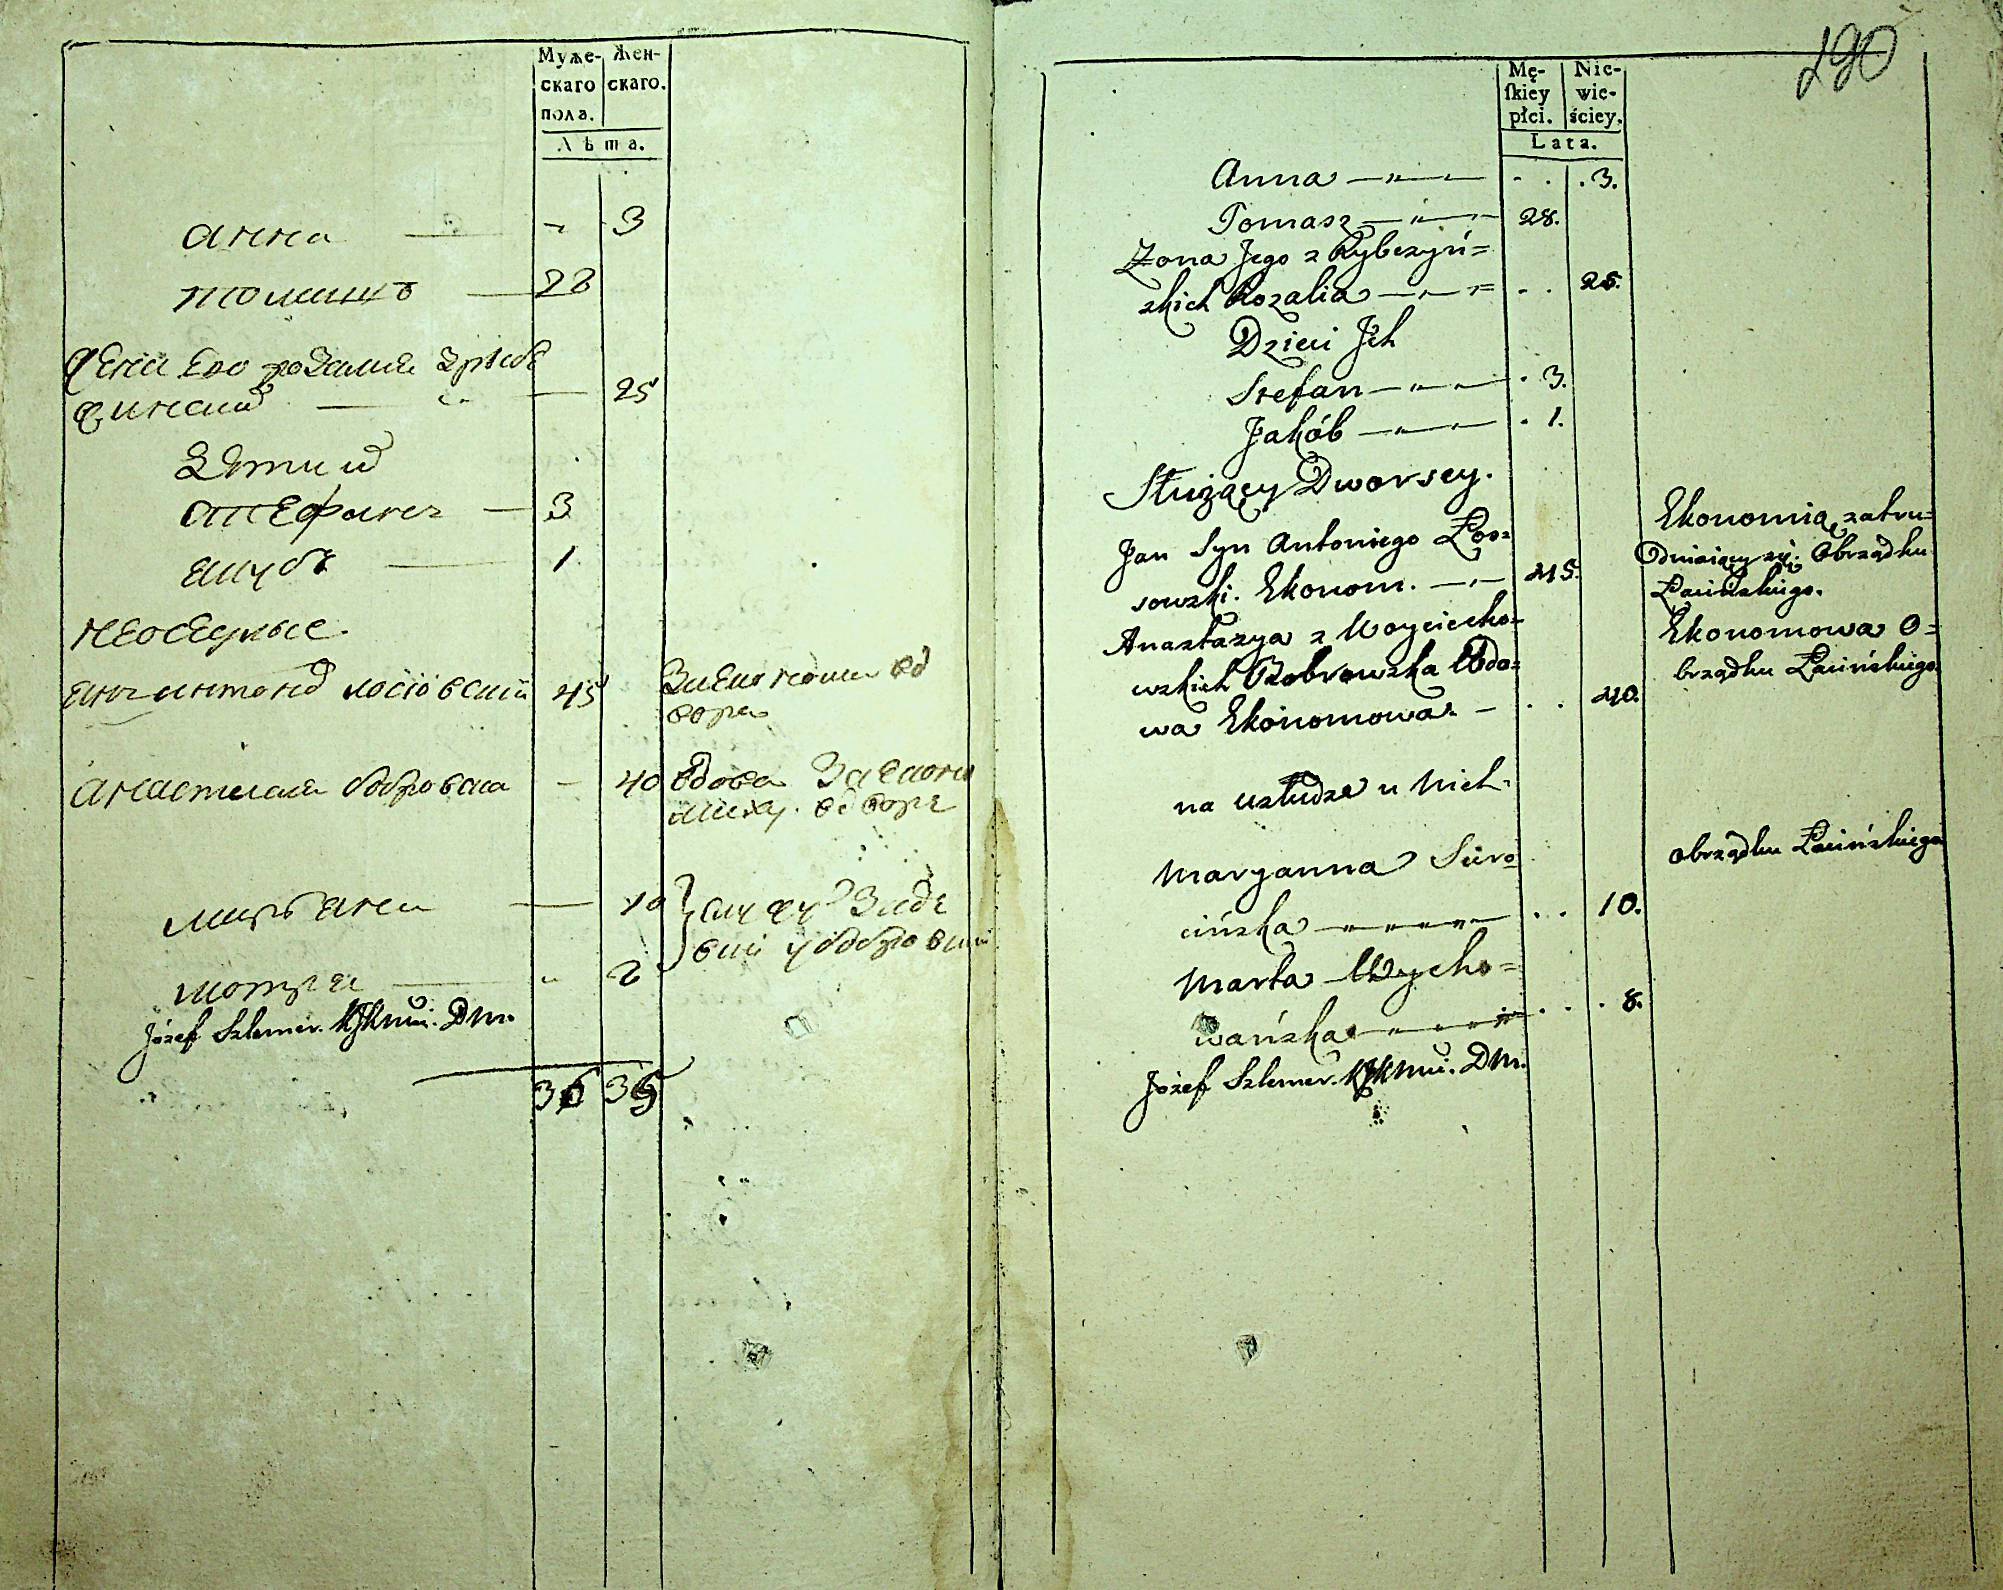 Муже-
скаго
пола.
Жен-
скаго.
Лѣта.
анна — - 3
томашъ — 28
жена Его розалия Зрибъ
чинских — 25
Дѣти их
стефанъ — 3
якубъ — 1
неоседлые
янъ антонов лосiовский 45 Заеконома во д
воре
анастасия бобровска - 40 вдова За еконо
мику в дворе
марьяна — 10
служу
мотря — " 8
у бобровски
Józef Szlemer. Dm.
36 39
290
Mę-
skiey
płci.
Nie-
wie-
ściey.
Lata.
Anna — " — . . . 3.
Tomasz — " — 28.
Żona Jego z Rybczyń=
skich Rozalia — " — = . . 25.
Dzieci Jch
Stefan — " — . 3.
Jakób — " — . 1.
Służący Dworscy.
Jan Syn Antoniego Łos=
sowski. Ekonom. — " — 45.
Ekonomią zatru=
dniaiący się. Obrządku
Łacińskiego.
Anastazya z Woyciecho=
wskich Bobrowska Wdo=
wa Ekonomowa. — . . 40.
Ekonomowa O=
brządku Łacińskiego.
na usłudze u nich.
Maryanna Siero=
cińska — " — . . 10.
obrządku Łacińskiego
Marta Wycho=
wańska — " — . . . 8.
Józef Szlemer. Dm.